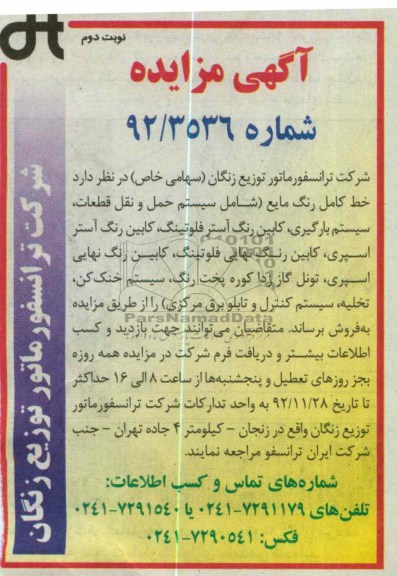 نوبت دوم
آگهی مزایده
شماره ۹۲/۳۵۳۶
شرکت ترانسفورماتور توزیع زنگان (سهامی خاص) در نظر دارد
خط کامل رنگ مایع (شامل سیستم حمل و نقل قطعات،
سیستم بارگیری، کابین رنگ آستر فلوتینگ، کابین رنگ آستر
اسپری، کابین رنگ نهایی فلوتینگ، کابین رنگ نهایی
اسپری، تونل گاز زدا کوره پخت رنگ، سیستم خنک‌کن،
تخلیه، سیستم کنترل و تابلو برق مرکزی) را از طریق مزایده
به‌فروش برساند. متقاضیان می‌توانند جهت بازدید و کسب
اطلاعات بیشتر و دریافت فرم شرکت در مزایده همه روزه
بجز روزهای تعطیل و پنجشنبه‌ها از ساعت ۸ الی ۱۶ حداکثر
تا تاریخ ۹۲/۱۱/۲۸ به واحد تدارکات شرکت ترانسفورماتور
توزیع زنگان واقع در زنجان - کیلومتر ۴ جاده تهران - جنب
شرکت ایران ترانسفو مراجعه نمایند.
شماره‌های تماس و کسب اطلاعات:
تلفن‌های ۷۲۹۱۱۷۹-۰۲۴۱ یا ۷۲۹۱۵۴۰-۰۲۴۱
فکس: ۷۲۹۰۵۴۱-۰۲۴۱
شرکت ترانسفورماتور توزیع زنگان
ParsNamadData